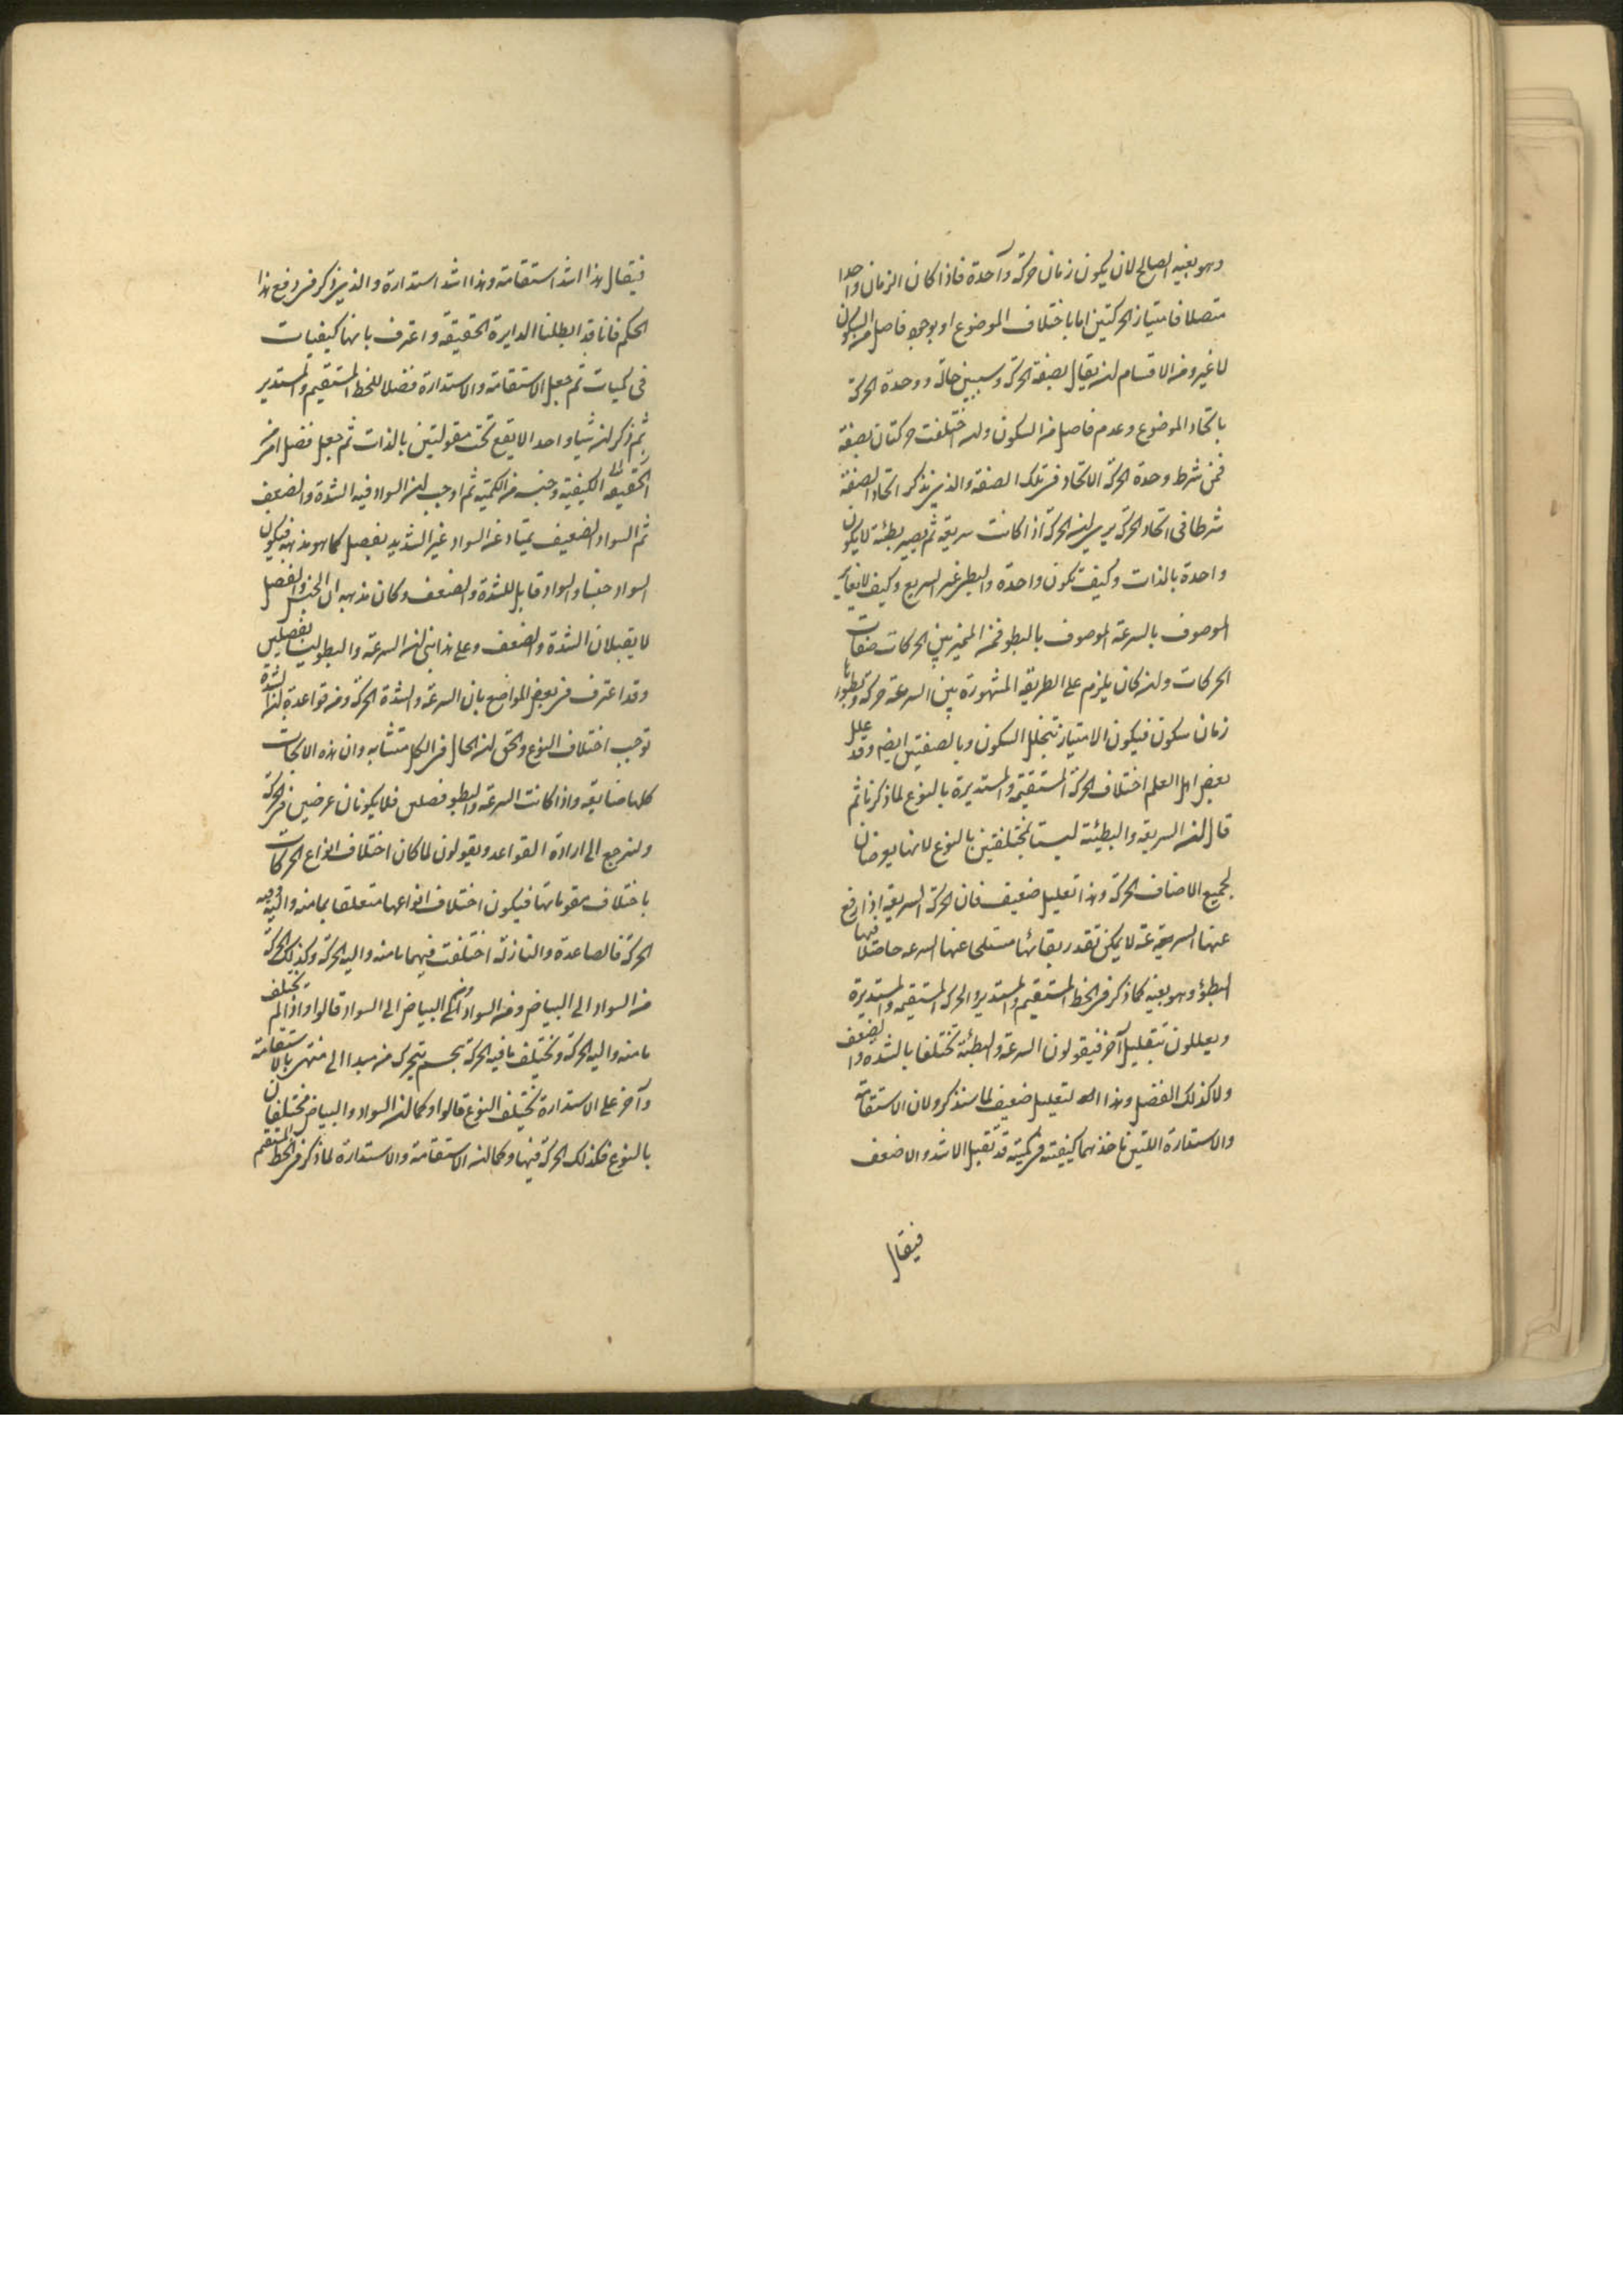 وهو بعينه الصالح لان يكون زمان حركة واحدة فاذا كان الزمان واحدا
متصلا فامتياز الحركتين اما باختلاف الموضوع او بوجود فاصل من السكون
لا غير ومن الاقسام ان يقال بصفة الحركة وسيبين حاله ووحدة الحركة
باتحاد الموضوع وعدم فاصل من السكون وان اختلفت حركتان بصفة
فمن شرط وحدة الحركة الاتحاد فى تلك الصفة والذى يذكر اتحاد الصفة
شرطا فى اتحاد الحركة يرى ان الحركة اذا كانت سريعة ثم يصير بطئة لا يكون
واحدة بالذات وكيف تكون واحدة والبطى غير السريع وكيف لا يغاير
الموصوف بالسرعة الموصوف بالبطو فمن المميز بين الحركات صفات
الحركات وان كان يلزم على الطريقة المشهورة بين السرعة حركة وبطوءها
زمان سكون فيكون الامتياز بتخلل السكون وبالصفتين ايضا وقد علل
بعض اهل العلم اختلاف الحركة المستقيمة والمستديرة بالنوع لما ذكرنا ثم
قال ان السريعة والبطيئة ليستا بمختلفتين بالنوع لانها يعرضان
لجميع الاصناف الحركة وهذا تعليل ضعيف فان الحركة السريعة اذا رفع
عنها السرعة لا يمكن تقدر بقائها منسلخا عنها السرعه حاصلا فيها
البطؤ وهو بعينه كما ذكر فى الخط المستقيم والمستدير والحركة المستقيمة والمستديرة
ويعللون بتعليل آخر فيقولون السرعة والبطئة تختلفا بالشدة والضعف
ولا كذلك الفصل وهذا التعليل ضعيف لما سنذكر ولان الاستقامة
والاستدارة اللتين ناخذهما كيفية فى كمية قد تقبل الاشد والاضعف
فيقال
فيقال هذا اشد استقامة وهذا اشد استدارة والذى ذكر فى دفع هذا
الحكم فانا قد ابطلنا الدايرة الحقيقة واعترف بانها كيفيات
فى كميات ثم جعل الاستقامة والاستدارة فصلا للخط المستقيم والمستدير
ثم ذكر ان شيا واحدا لا يقع تحت مقولتين بالذات ثم جعل فصل امر من
الكيفية وجنسه من الكمية ثم اوجب ان السواد فيه الشدة والضعف
ثم السواد الضعيف يمتاز عن السواد غير الشديد بفصل كما هو مذهبه فيكون
السواد جنسا والسواد قابل للشدة والضعف وكان مذهبه ان الجنس والفصل
لا يقبلان الشدة والضعف وعلى هذا بنى ان السرعة والبطو ليسا بفصلين
وقد اعترف فى بعض المواضع بان السرعة والشدة الحركة ومن قواعده ان الشدة
توجب اختلاف النوع والحق ان الحال فى الكل متشابه وان هذه الابحاث
كلها ضايعة واذا كانت السرعة والبطو فصلين فلا يكونان عرضين فى الحركة
ولنرجع الى ارادة القواعد ويقولون لما كان اختلاف انواع الحركات
باختلاف مقوماتها فيكون اختلاف انواعها متعلقا بما منه واليه وفيه
الحركة فالصاعدة والنازلة اختلفت فيهما ما منه واليه الحركة وكذلك الحركة
من السواد الى البياض ومن البياض الى السواد قالوا واذا لم تختلف
ما منه واليه الحركة وتختلف ما فيه الحركة بجسم يتحرك من مبدا الى منتهى بالاستقامة
وآخر على الاستدارة تختلف النوع قالوا وكما ان السواد والبياض مختلفان
بالنوع فكذلك الحركة فيها وكما ان الاستقامة والاستدارة لما ذكر فى الخط المستقيم